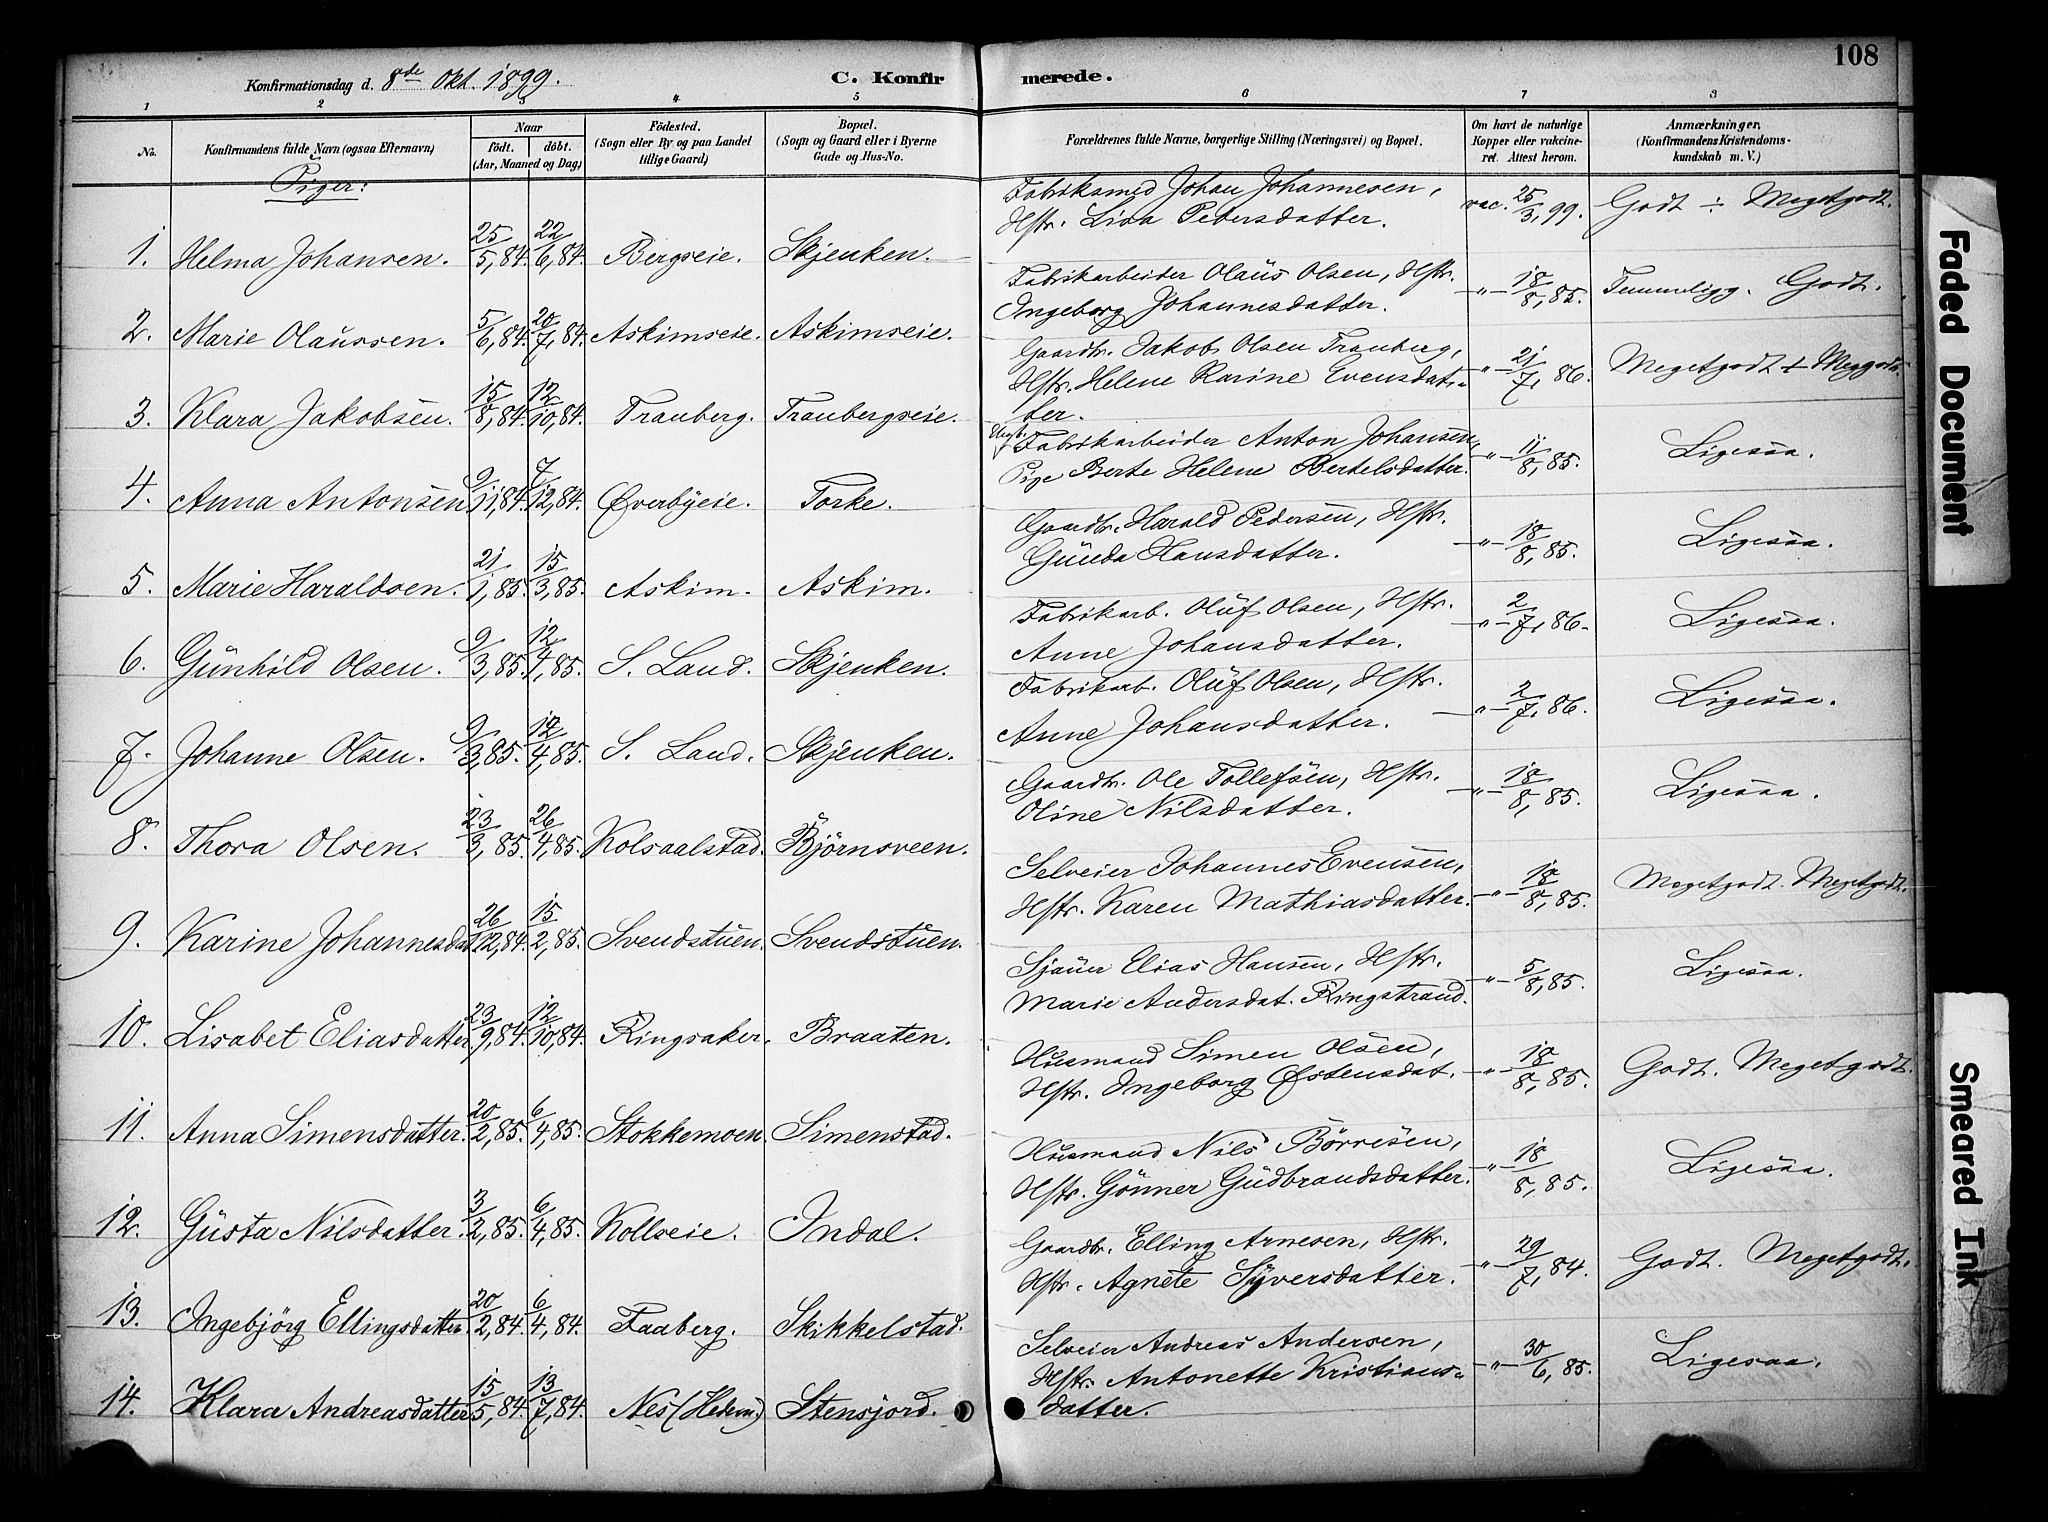 108
Konfirmationsdag d. 8de Okt. 1899.
C. Konfirmerede.
1 2 3 4 5 6 7 8
No.
Konfirmandens fulde Navn (ogsaa Efternavn)
Naar
födt. döbt.
(Aar, Maaned og Dag)
Födested.
(Sogn eller By og paa Landet
tillige Gaard)
Bopæl.
(Sogn og Gaard eller i Byerne
Gade og Hus-No.
Forældrenes fulde Navne, borgerlige Stilling (Næringsvei) og Bopæl.
Om havt de naturlige
Kopper eller vakcine-
ret. Attest herom.
Anmærkninger,
(Konfirmandens Kristendoms-
kundskab m. V.)
Piger:
Fabriksmed Johan Johannesen,
Hstr. Lisa Pedersdatter.
vac. 25/3, 99. Godt ÷ Megetgodt.
1. Helma Johansen. 25/5, 84. 22/6, 84. Bergseie. Skjenken.
Fabrikarbeider Olaus Olsen, Hstr.
Ingeborg Johannesdatter.
-"- 18/8, 85. Temmeligg. Godt.
2. Marie Olaussen. 5/6, 84. 20/7, 84. Askimseie. Askimseie.
Gaardbr. Jakob Olsen Trauberg,
Hstr. Helene Karine Evensdat-
ter.
-"- 21/7, 86. Megetgodt + Meggodt.
3. Klara Jakobsen. 15/8, 84. 12/10, 84. Trauberg. Traubergseie.
Fabrikarbeider Anton Johansen,
Pige Berte Helene Bertelsdatter.
-"- 11/8, 85. Ligesaa.
4. Anna Antonsen 9/11, 84. 7/12, 84. Överbyeie. Torke.
Gaardbr. Harald Pedersen, Hstr.
Gunda Hansdatter.
-"- 18/8, 85. Ligesaa.
5. Marie Haraldsen. 21/1, 85. 15/3, 85. Askim. Askim.
Fabrikarb. Oluf Olsen, Hstr.
Anne Johansdatter.
-"- 2/7, 86. Ligesaa.
6. Gunhild Olsen. 9/3, 85. 12/4, 85. S. Land. Skjenken.
Fabrikarb. Oluf Olsen, Hstr.
Anne Johansdatter.
-"- 2/7, 86. Ligesaa.
7. Johanne Olsen. 9/3, 85. 12/4, 85. S. Land. Skjenken.
Gaardbr. Ole Tollefsen, Hstr.
Oline Nilsdatter.
-"- 18/8, 85. Ligesaa.
8. Thora Olsen. 23/3, 85. 26/4, 85. Kolsaalstad. Björnsveen.
Selveier Johannes Evensen,
Hstr. Karen Mathiasdatter.
-"- 18/8, 85. Megetgodt. Megetgodt.
9. Karine Johannesdat 26/12, 84. 15/2, 85. Svendstuen. Svendstuen.
Sjauer Elias Hansen, Hstr.
Marie Andersdat. Ringstrand.
-"- 5/8, 85. Ligesaa.
10. Lisabet Eliasdatter 23/9, 84. 12/10, 84. Ringsaker. Braaten.
Husmand Simen Olsen,
Hstr. Ingeborg Östensdat.
-"- 18/8, 85. Godt. Megetgodt.
11. Anna Simensdatter. 20/2, 85. 6/4, 85. Stokkemoen. Simenstad.
Husmand Nils Börresen,
Hstr. Gönner Gudbrandsdatter.
-"- 18/8, 85. Ligesaa.
12. Gusta Nilsdatter. 3/2, 85. 6/4, 85. Kollseie. Indal.
Gaardbr. Elling Arnesen, Hstr.
Hstr. Agnete Syversdatter.
-"- 29/7, 84. Godt. Megetgodt.
13. Ingebjörg Ellingsdatter. 20/2, 84. 6/4, 84. Faaberg. Skikkelstad.
Selveier Andreas Andersen,
Hstr. Antonette Kristians-
datter.
-"- 30/6, 85. Ligesaa.
14. Klara Andreasdatter 15/5, 84. 13/7, 84. Nes (Hedem.) Stensjord.
Faded Document
Smeared Ink